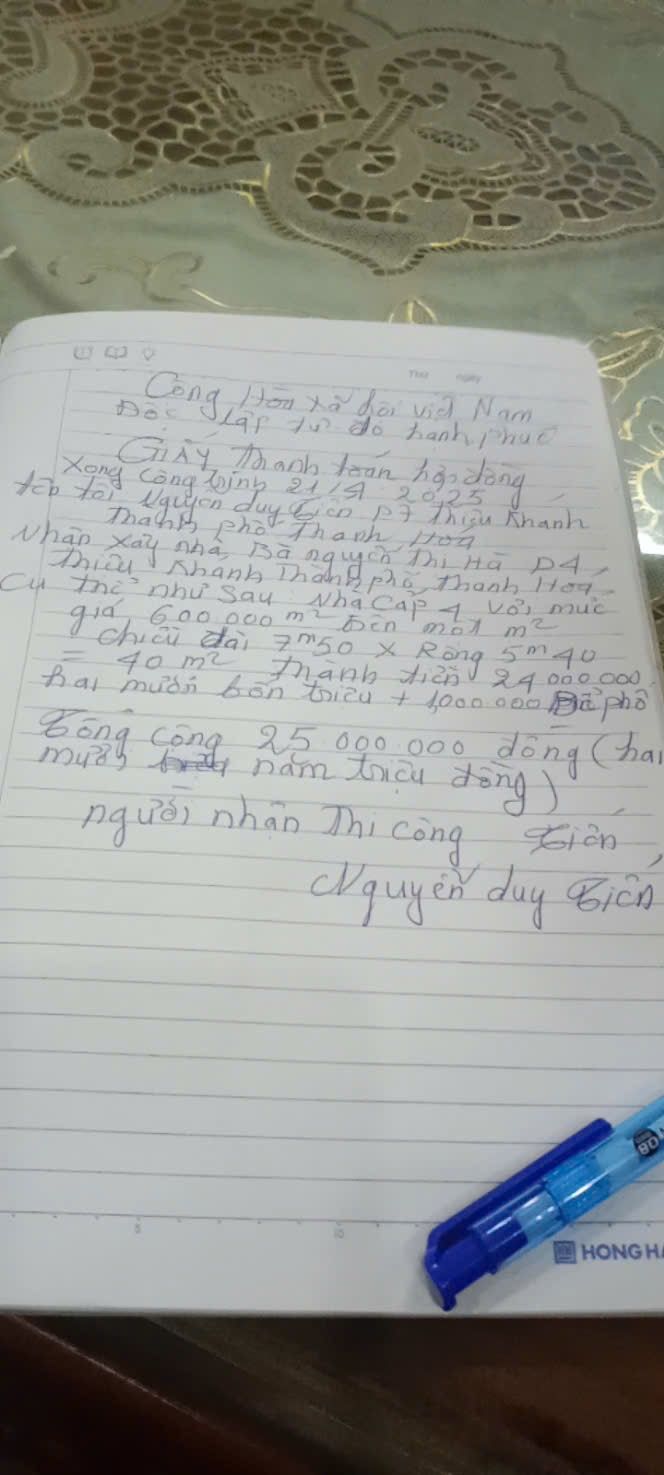 Thứ ngày
Công Hòa xã hôi việt Nam
Đôc lâp tự do hanh phuc
GIẤY Thanh toán hợp đông
Xong công trình 21/4 2025
tên tôi Nguyên duy Tiên P7 Thiệu Khanh
Thanh phố Thanh Hoa
Nhân xây nhà Bà nguyên Thi Hà D4
Thiệu Khanh Thanh phố Thanh Hoa
Cu thể như sau Nhà Cấp 4 với mưc
giá 600 000 m² trên môt m²
chiêu dài 7m50 x Rông 5m40
= 40 m² thành tiên 24 000 000
hai mươi bôn triêu + 1.000 000 phô
Tông công 25.000.000 đông (hai
mươi năm triêu đông)
người nhân Thi công Tiên
Nguyên duy Tiên
5 10
HONG HÀ
QB